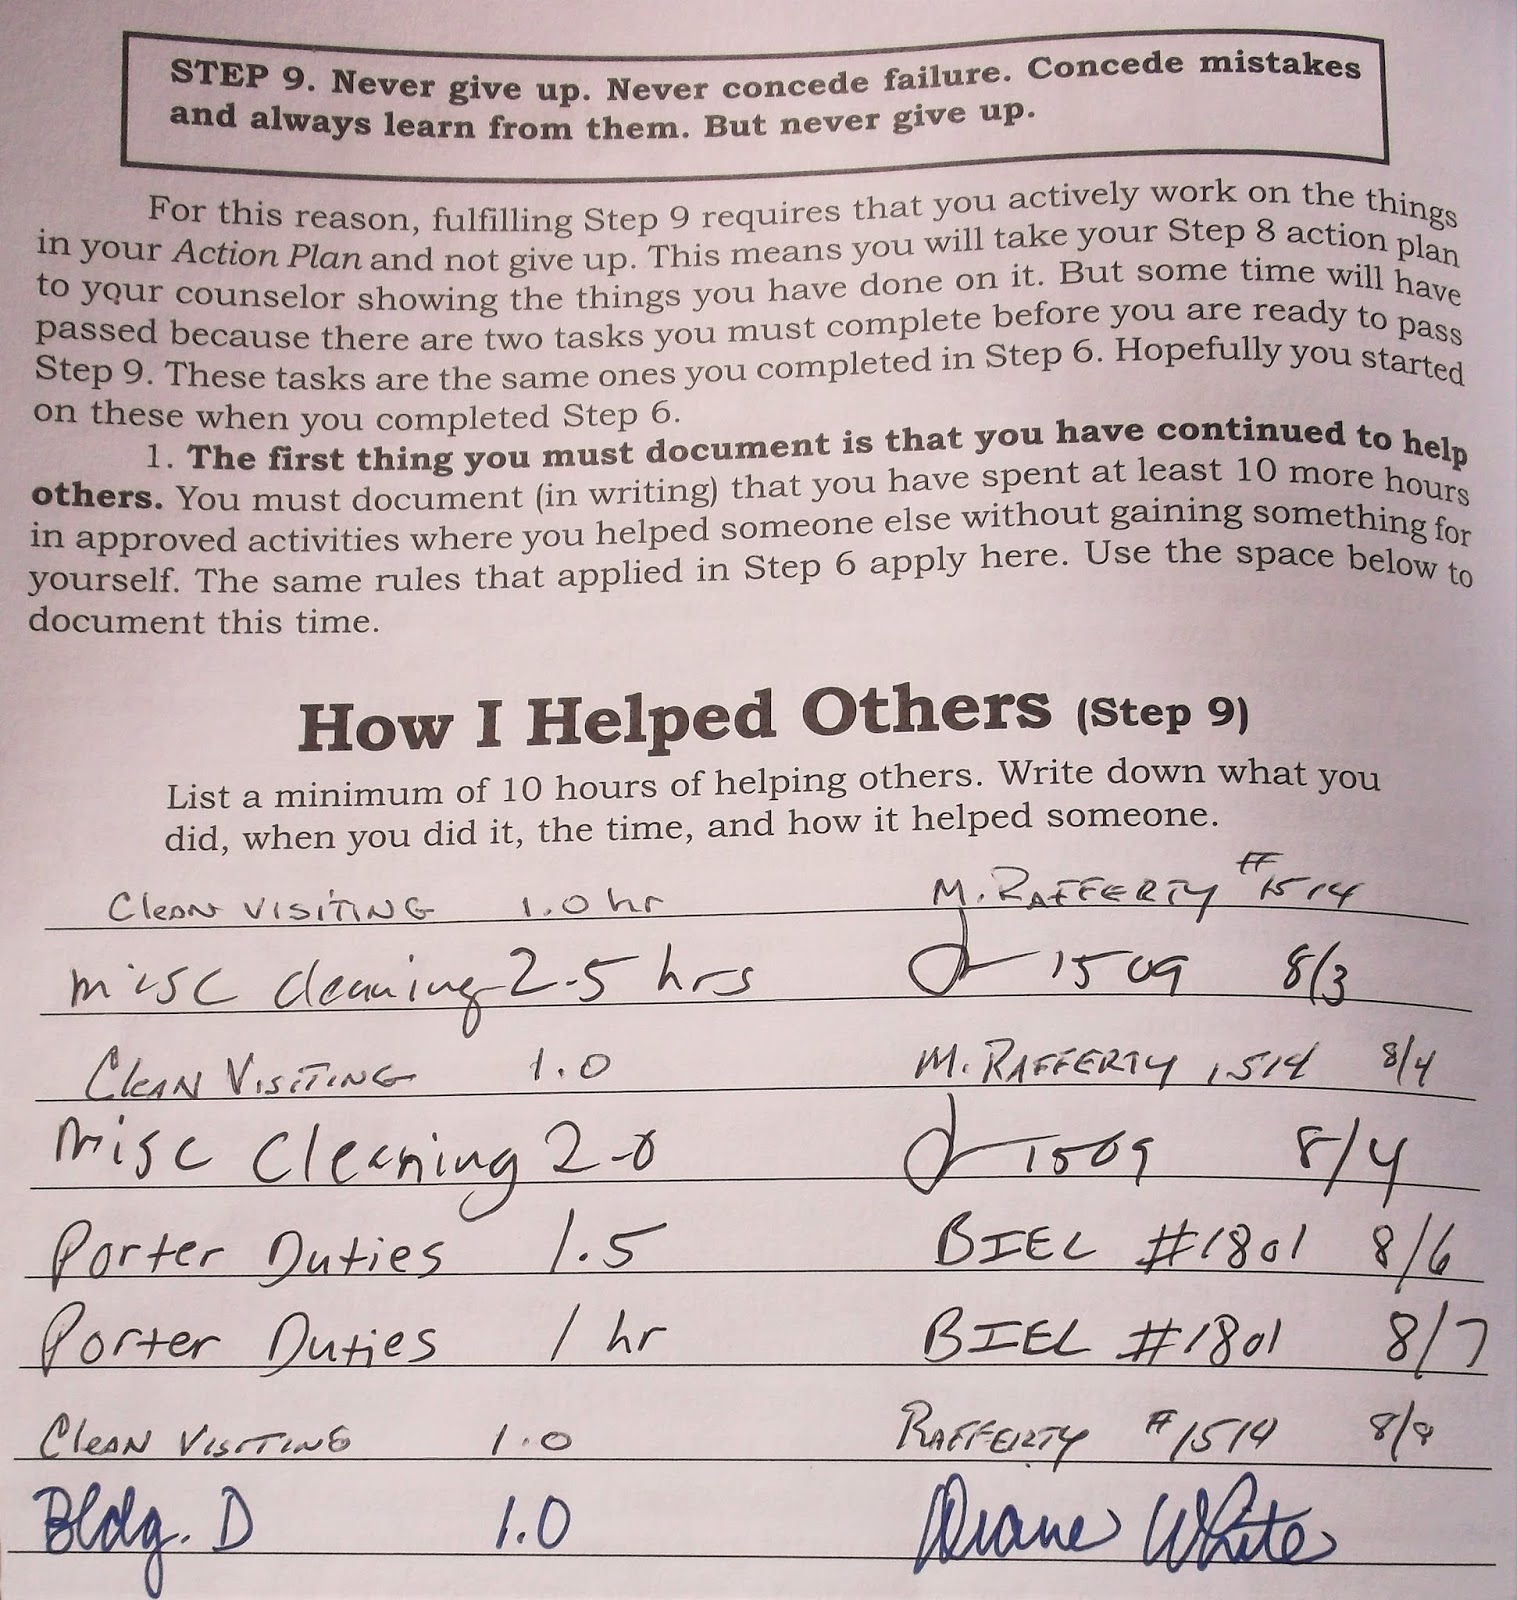 STEP 9. Never give up. Never concede failure. Concede mistakes
and always learn from them. But never give up.
For this reason, fulfilling Step 9 requires that you actively work on the things
in your Action Plan and not give up. This means you will take your Step 8 action plan
to your counselor showing the things you have done on it. But some time will have
passed because there are two tasks you must complete before you are ready to pass
Step 9. These tasks are the same ones you completed in Step 6. Hopefully you started
on these when you completed Step 6.
1. The first thing you must document is that you have continued to help
others. You must document (in writing) that you have spent at least 10 more hours
in approved activities where you helped someone else without gaining something for
yourself. The same rules that applied in Step 6 apply here. Use the space below to
document this time.
How I Helped Others (Step 9)
List a minimum of 10 hours of helping others. Write down what you
did, when you did it, the time, and how it helped someone.
Clean VISITING 1.0 hr M. RAFFERTY #1514
misc cleaning 2.5 hrs 1509 8/3
Clean Visiting 1.0 M. RAFFERTY 1514 8/4
Misc Cleaning 2.0 1509 8/4
Porter Duties 1.5 BIEL #1801 8/6
Porter Duties 1 hr BIEL #1801 8/7
Clean Visiting 1.0 RAFFERTY #1514 8/8
Bldg. D 1.0 Diane White